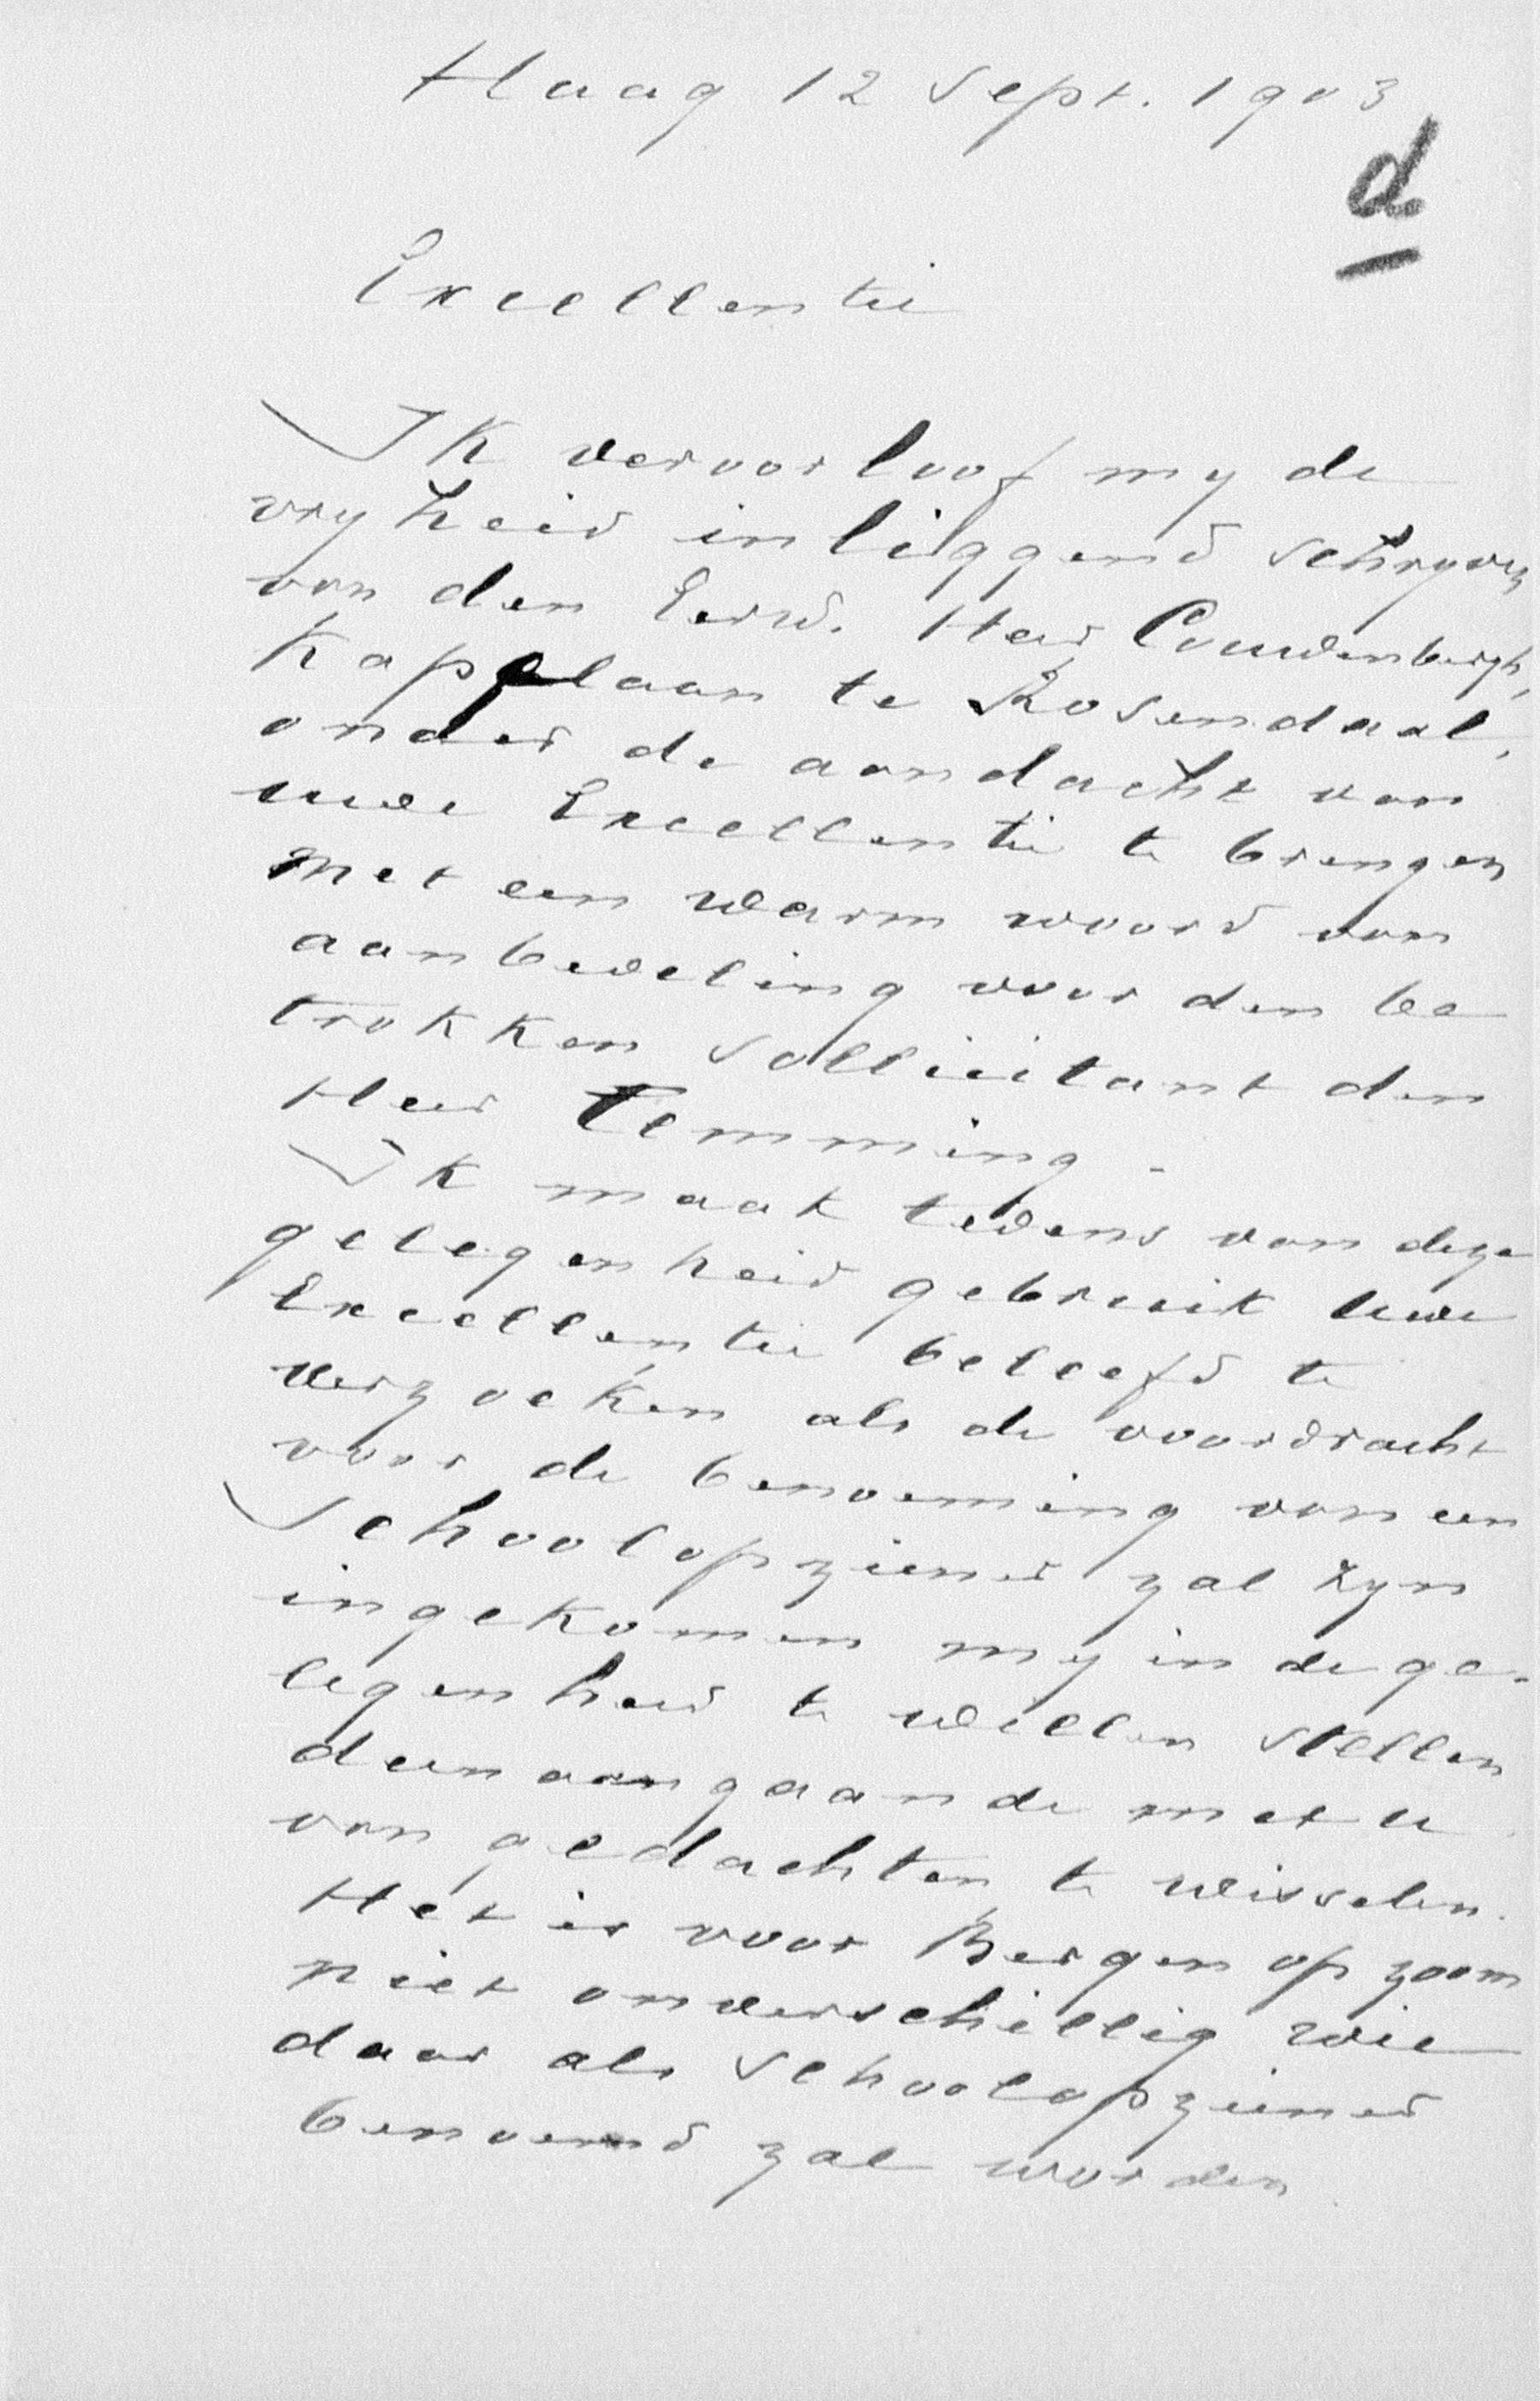 Haag 12 Sept. 1903
d
Excellentie
Ik veroorloof my de
vryheid inliggend schryven
van den Eerw. Heer Couwenbergh,
Kapelaan te Rosendaal,
onder de aandacht van
uwe Excellentie te brengen
met een warm woord van
aanbeveling voor den be
trokken sollicitant den
Heer Temming.
Ik maak tevens van deze
gelegenheid gebruik uwe
Excellentie beleefd te
verzoeken als de voordracht
voor de benoeming van een
Schoolopziener zal zyn
ingekomen my in de ge-
legenheid te willen stellen
dienaangaande met u
van gedachten te wisselen.
Het is voor Bergen op zoom
niet onverschillig wie
daar als Schoolopziener
benoemd zal worden.